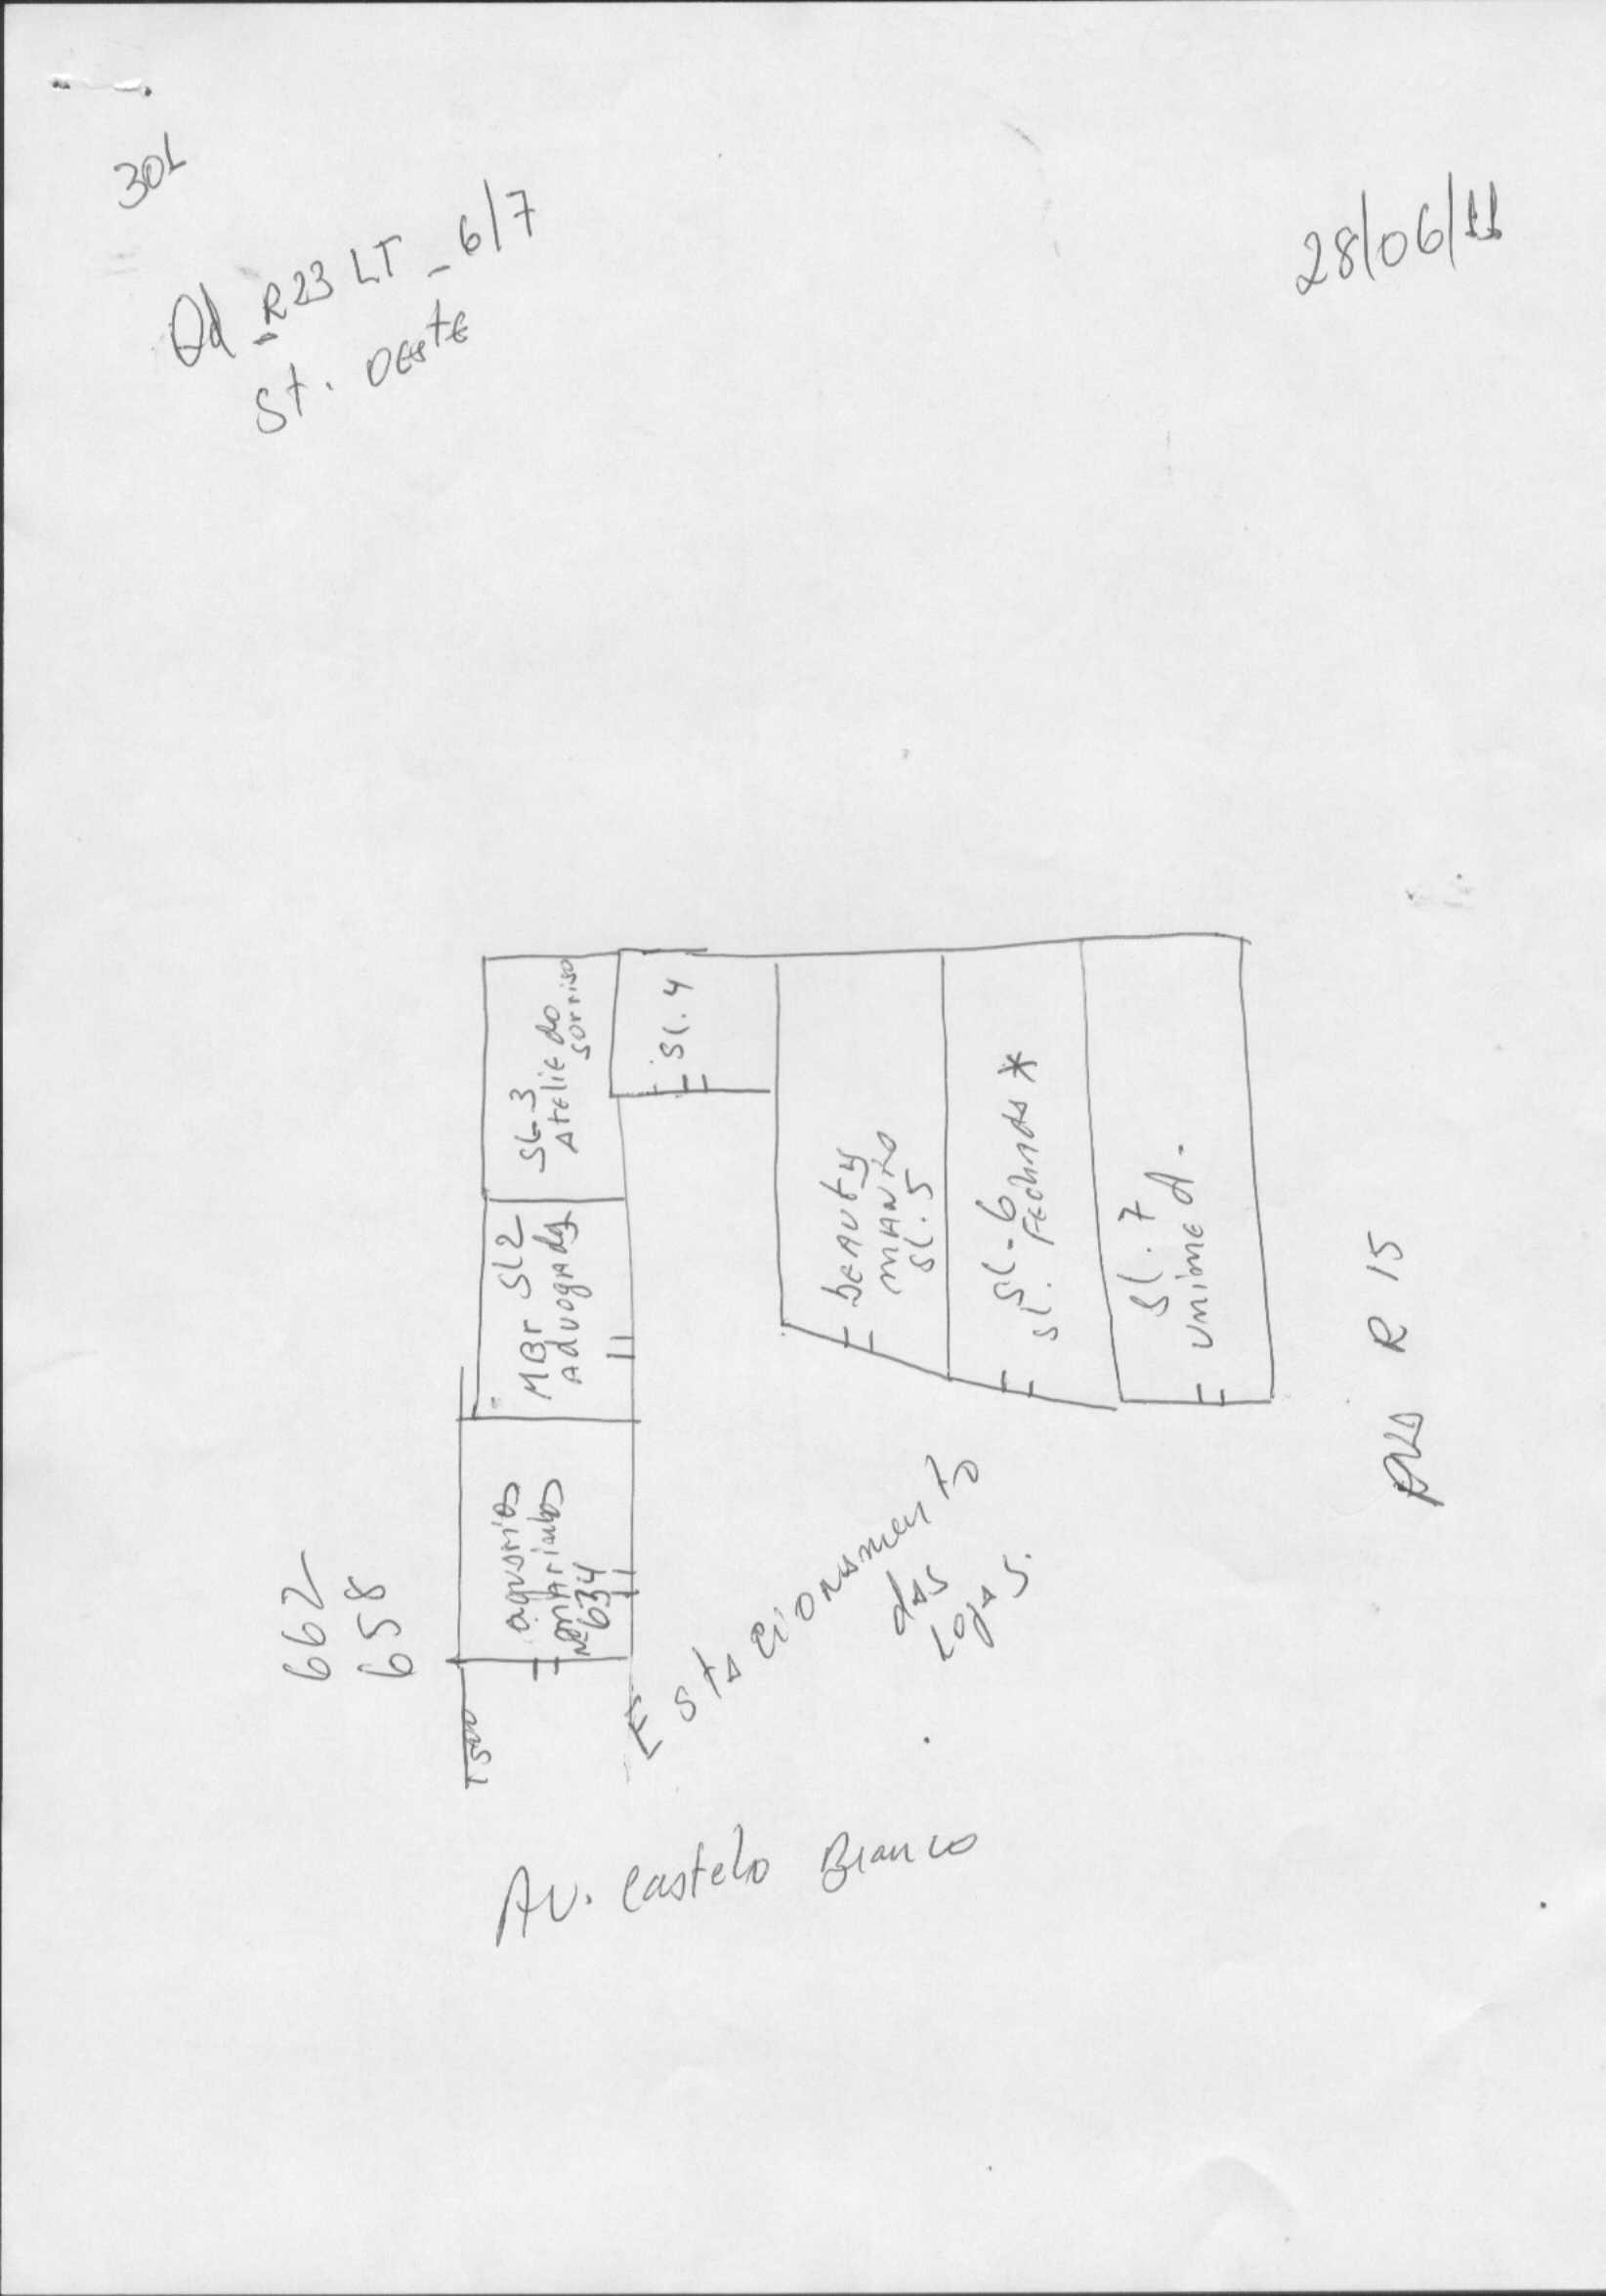 301
Qd - R23 LT - 6/7
St. OEstE
28/06/11
SL-3
AtEliE do
sorriso
SL. 4
MBr SL2
AdvogAd
bEAUty
SL. 5
SL - 6
SL. FEchAdA *
SL. 7
UnimEd.
R 15
aquarios
mArinhos
Nº 634
662
658
EstAcionAmento
dAs
LojAs.
Av. Castelo Branco